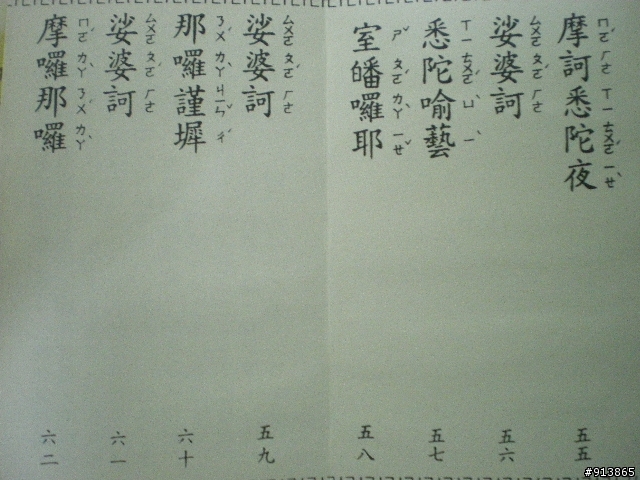 摩訶悉陀夜 五五
ㄇㄛˊ ㄏㄜ ㄒㄧ ㄊㄨㄛˊ ㄧㄝˋ
娑婆訶 五六
ㄙㄨㄛ ㄆㄛˊ ㄏㄜ
悉陀喻藝 五七
ㄒㄧ ㄊㄨㄛˊ ㄩˋ ㄧˋ
室皤囉耶 五八
ㄆㄛˊ ㄌㄚˋ
娑婆訶 五九
ㄙㄨㄛ ㄆㄛˊ ㄏㄜ
那囉謹墀 六十
ㄌㄚˋ ㄐㄧㄣˇ ㄔˊ
娑婆訶 六一
ㄙㄨㄛ ㄆㄛˊ ㄏㄜ
摩囉那囉 六二
ㄇㄛˊ ㄌㄚˋ ㄌㄚˋ
#913865